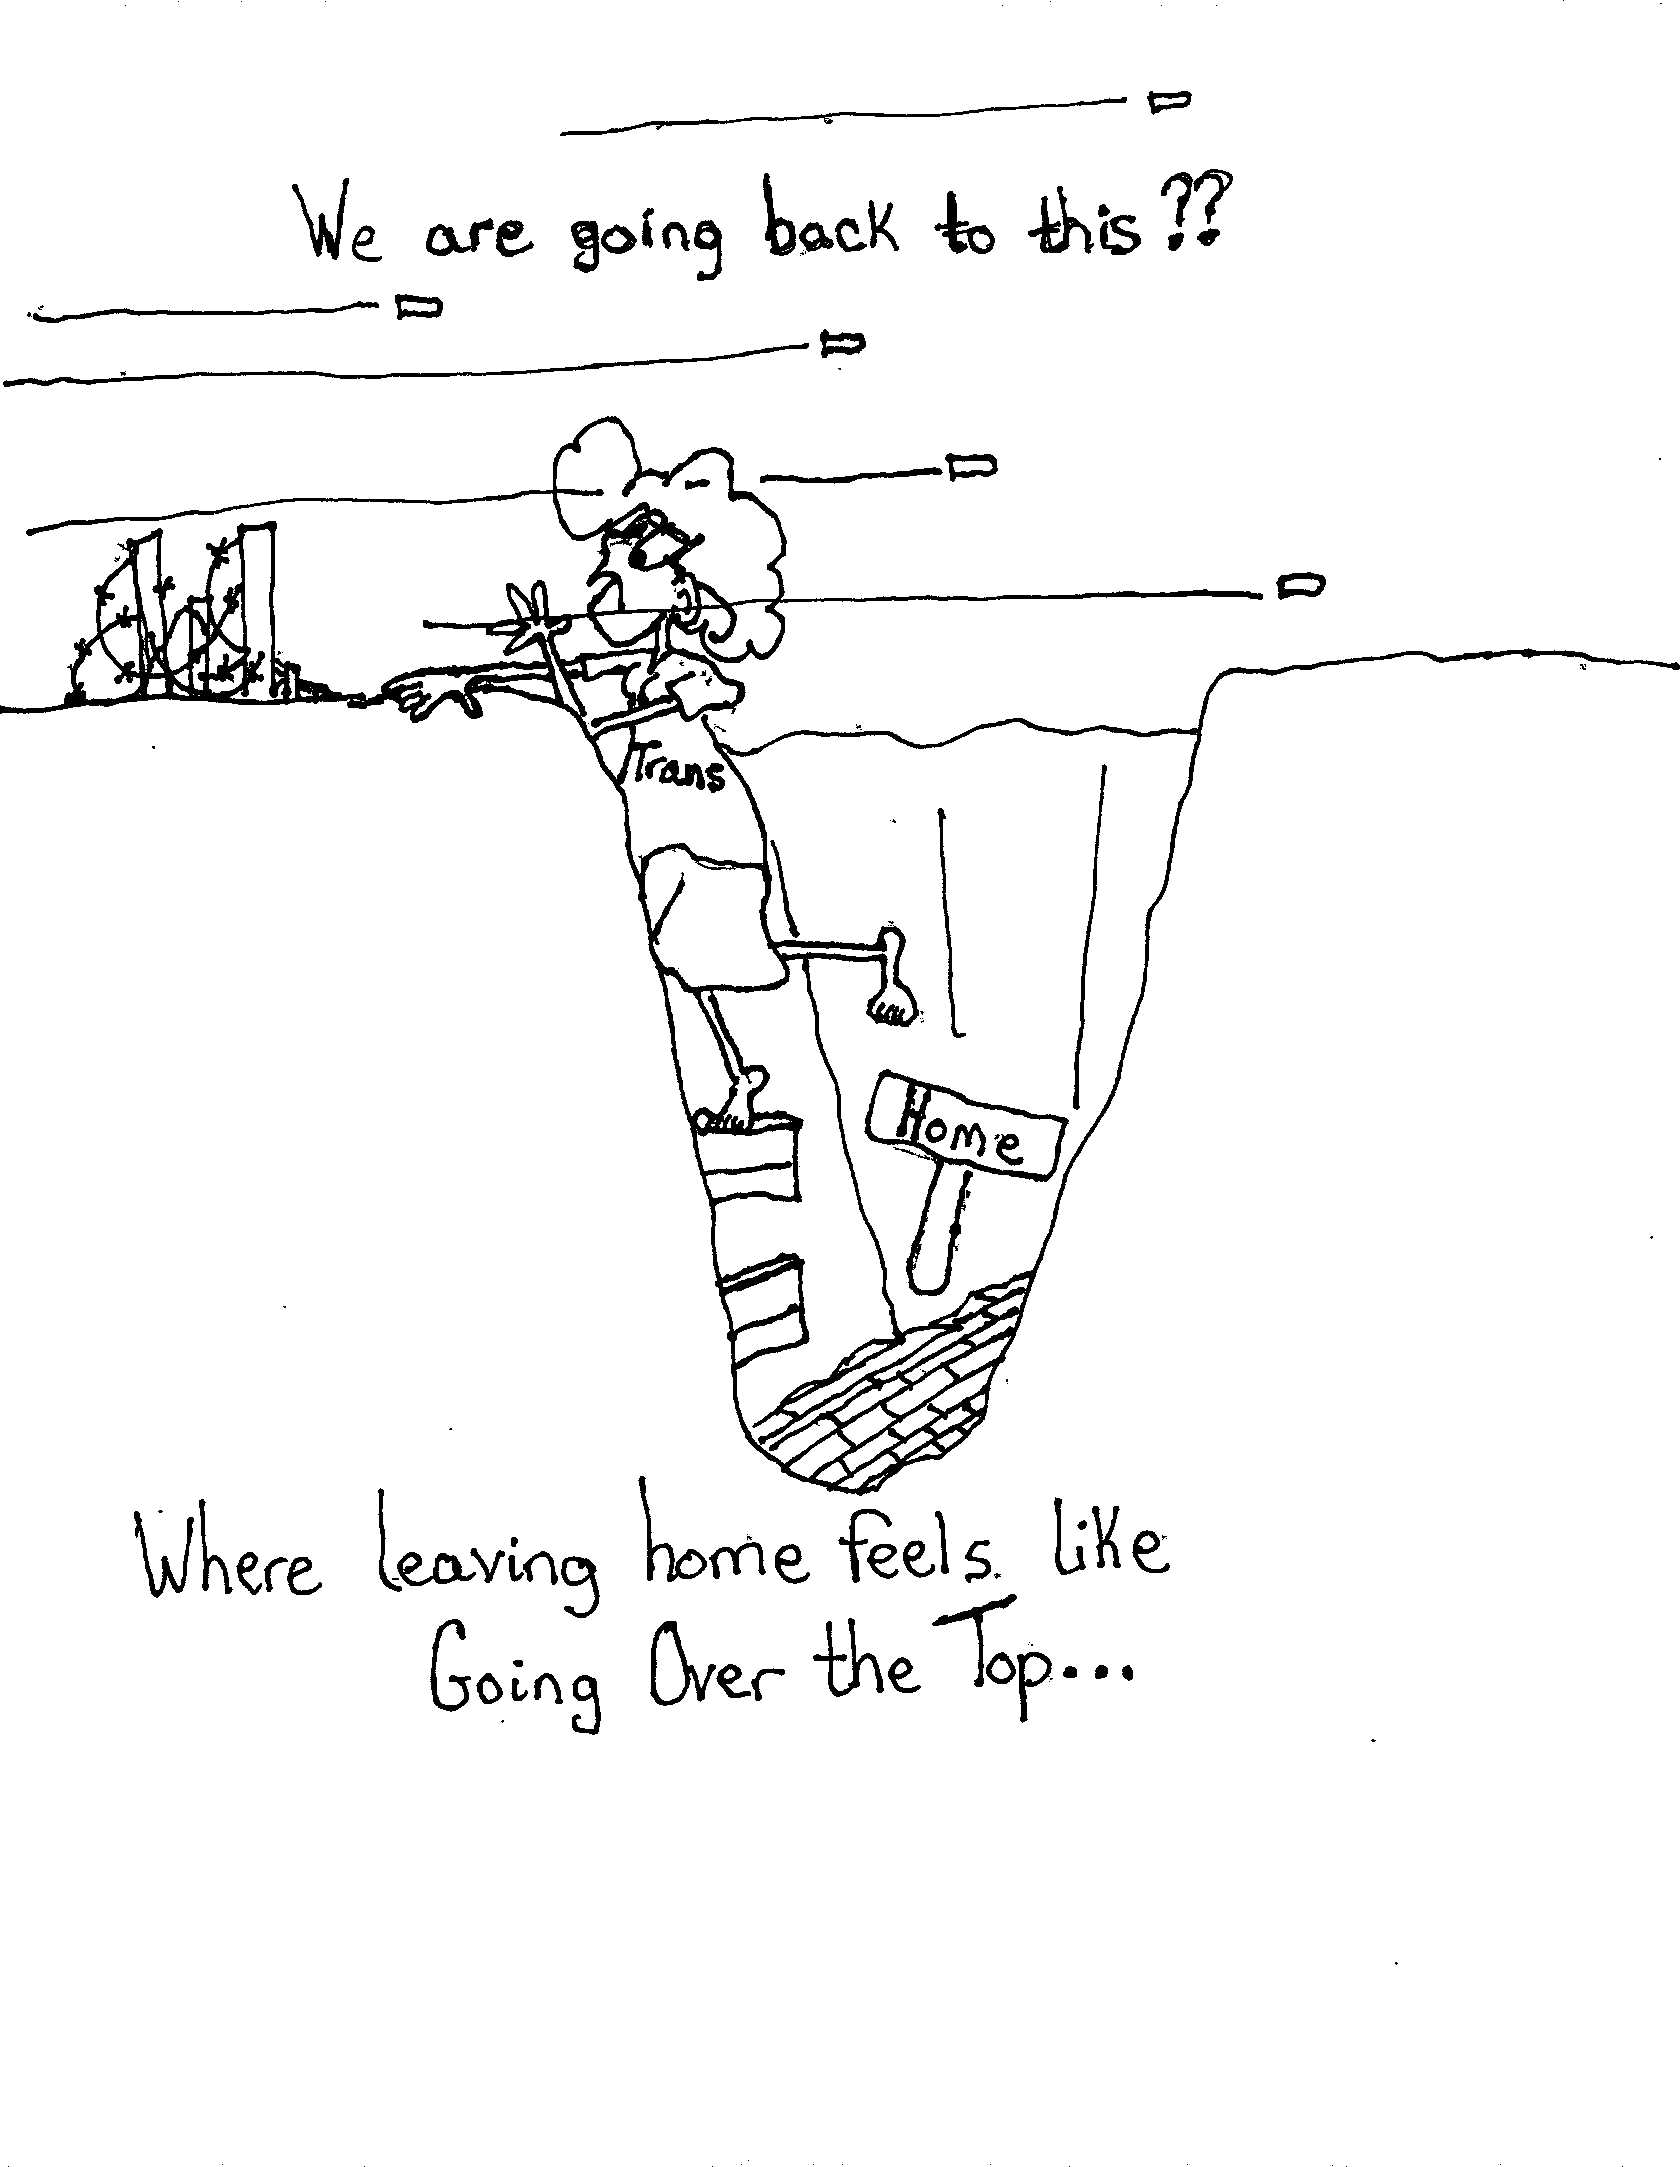 We are going back to this??
Trans
Home
Where leaving home feels like
Going Over the Top...